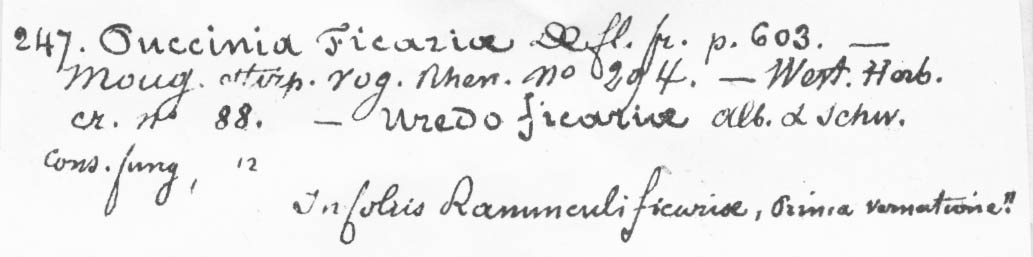 247. Puccinia Ficariæ DC fl. fr. p. 603. —
Moug. stirp. vog. Rhen. no 294. — West. Herb.
cr. no 88. — Uredo ficariæ alb. & schw.
Cons. fung, 12
In foliis Ranunculi ficariæ, Prima vernatione."